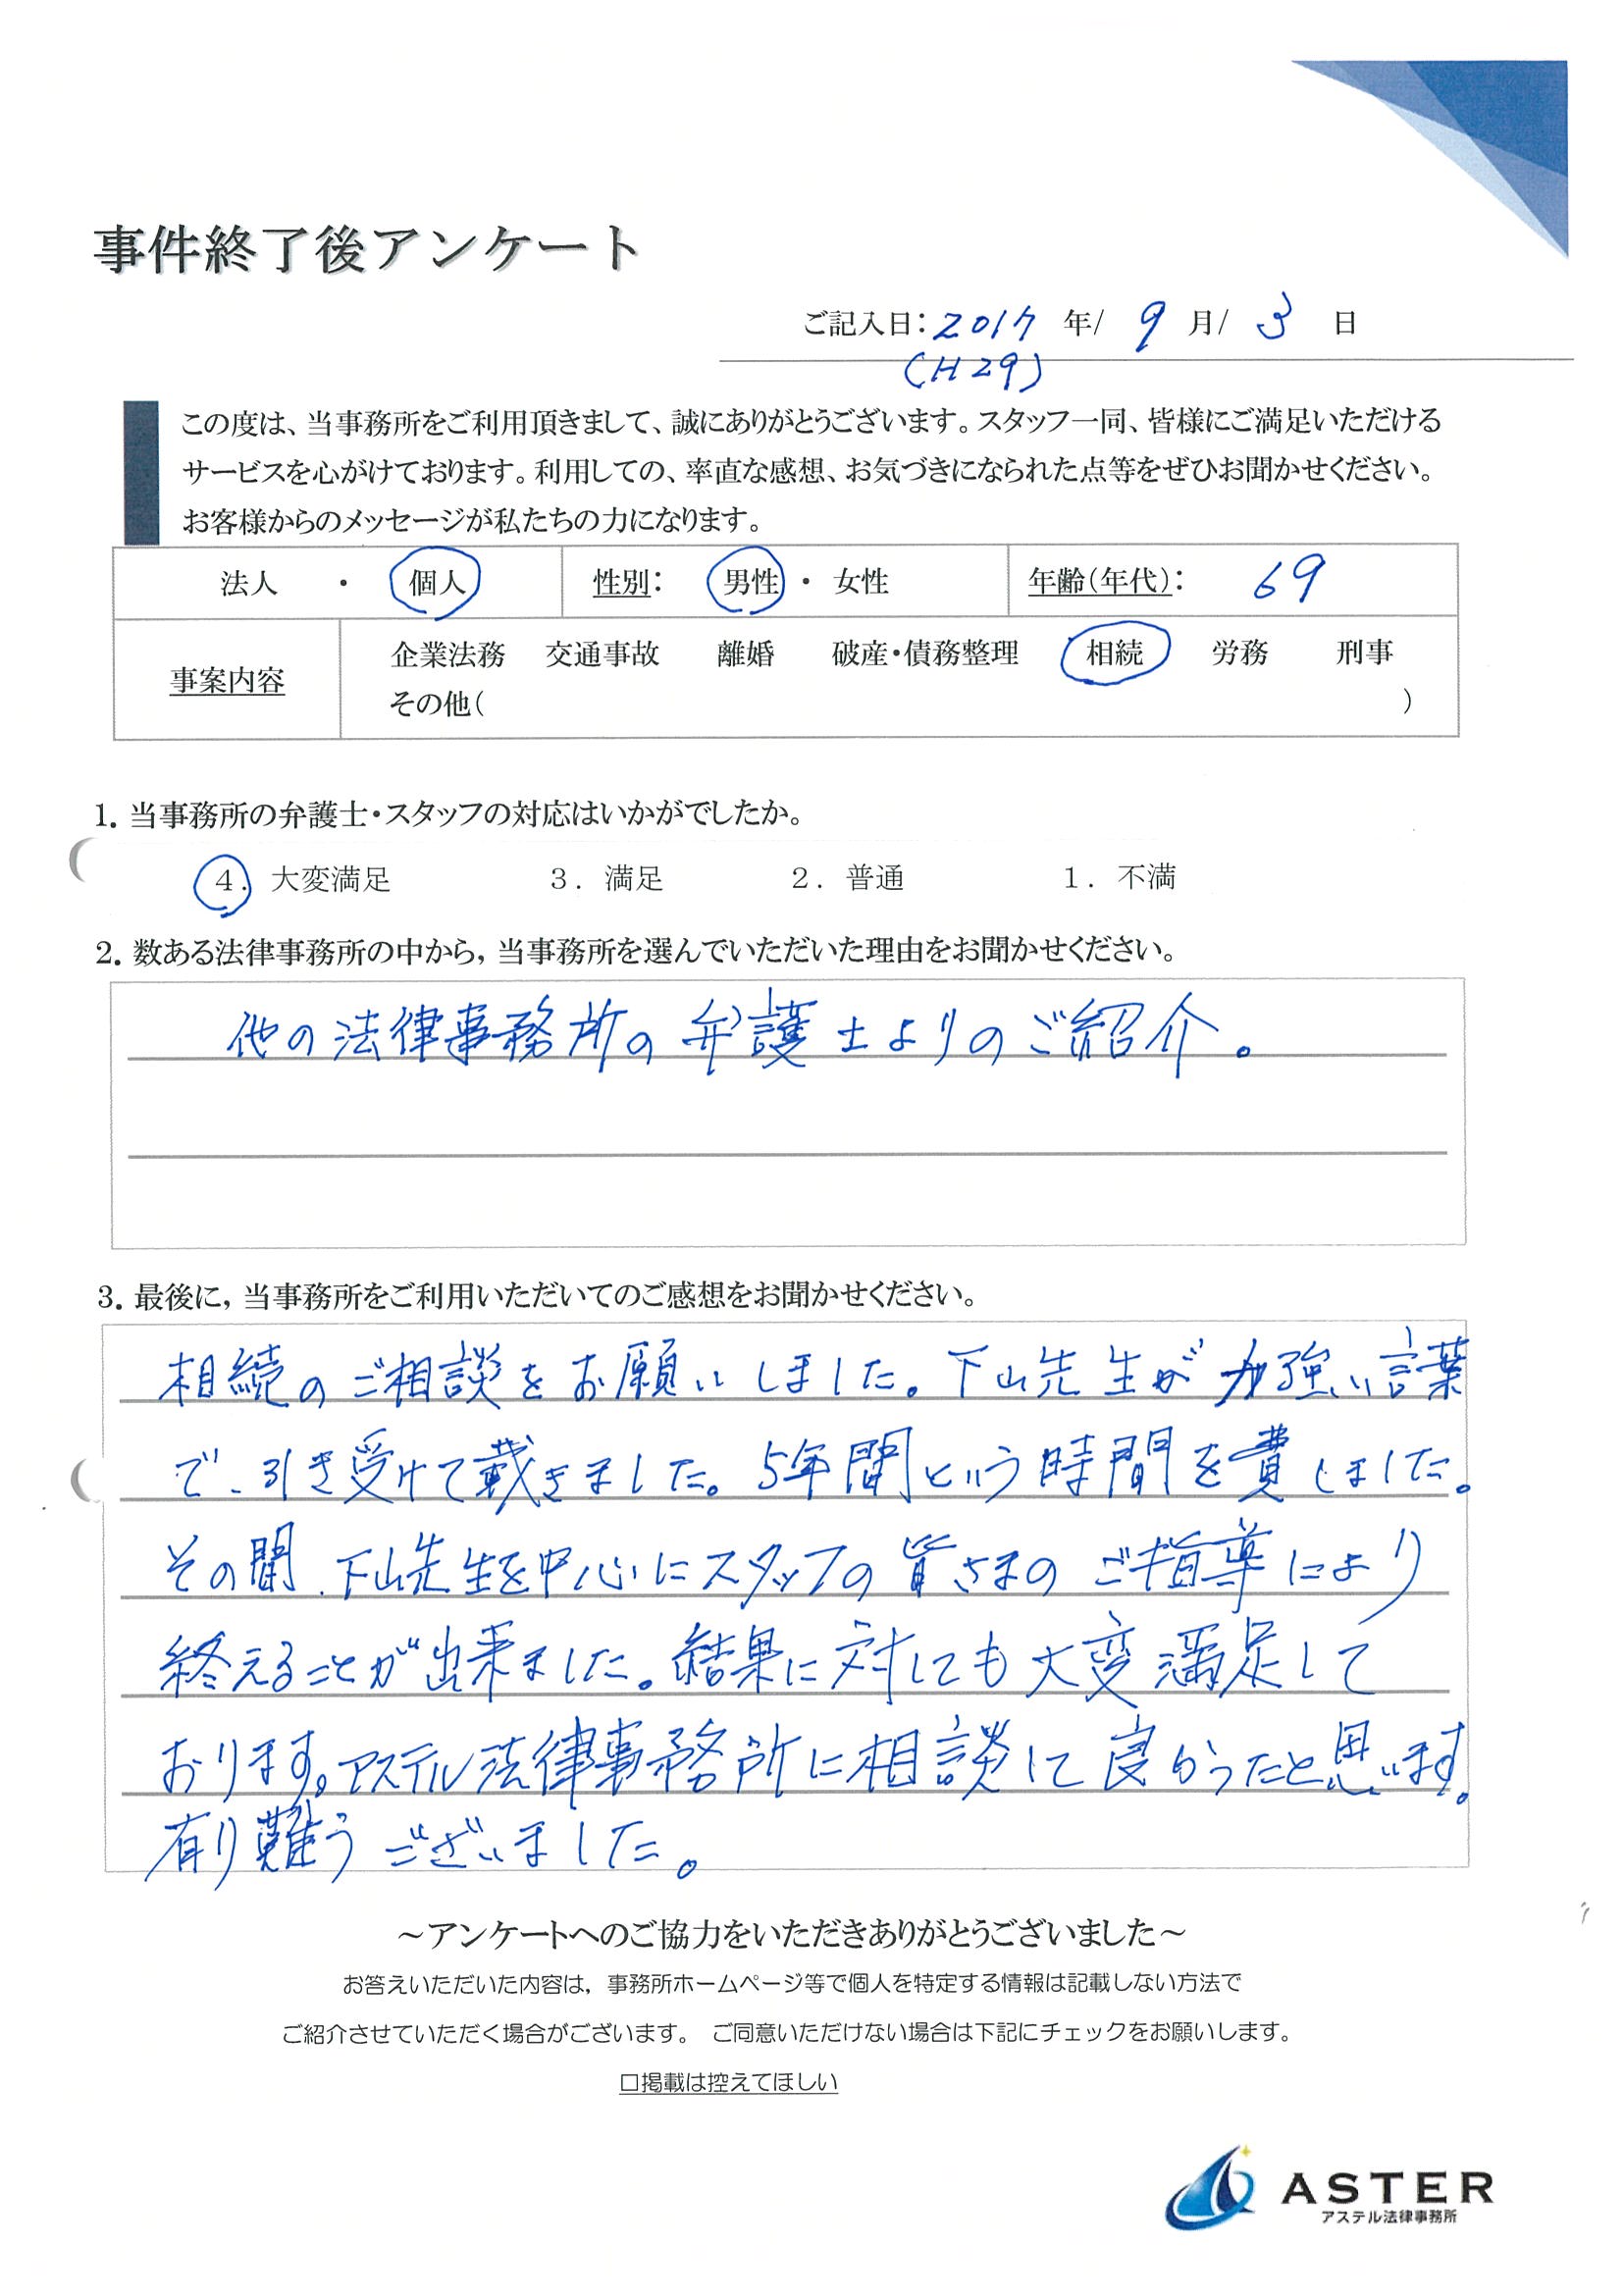 事件終了後アンケート
ご記入日：2017年/ 9月/ 3日
(H29)
この度は、当事務所をご利用頂きまして、誠にありがとうございます。スタッフ一同、皆様にご満足いただける
サービスを心がけております。利用しての、率直な感想、お気づきになられた点等をぜひお聞かせください。
お客様からのメッセージが私たちの力になります。
法人 ・ 個人 性別： 男性 ・ 女性 年齢（年代）： 69
事案内容 企業法務 交通事故 離婚 破産・債務整理 相続 労務 刑事
その他（ ）
1. 当事務所の弁護士・スタッフの対応はいかがでしたか。
4．大変満足 3．満足 2．普通 1．不満
2. 数ある法律事務所の中から，当事務所を選んでいただいた理由をお聞かせください。
他の法律事務所の弁護士よりのご紹介。
3. 最後に，当事務所をご利用いただいてのご感想をお聞かせください。
相続のご相談をお願いしました。下山先生が力強い言葉
で、引き受けて載きました。5年間という時間を費しました。
その間、下山先生を中心にスタッフの皆さまのご指導により
終えることが出来ました。結果に対しても大変満足して
おります。アステル法律事務所に相談して良かったと思います。
有り難うございました。
～アンケートへのご協力をいただきありがとうございました～
お答えいただいた内容は，事務所ホームページ等で個人を特定する情報は記載しない方法で
ご紹介させていただく場合がございます。 ご同意いただけない場合は下記にチェックをお願いします。
□掲載は控えてほしい
ASTER
アステル法律事務所